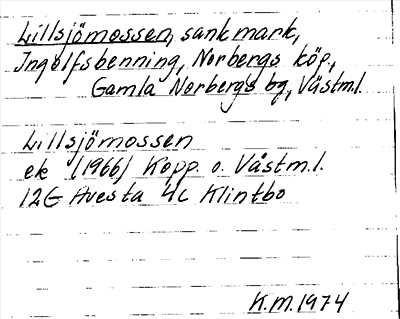 Lillsjömossen, sankmark,
Ingolfsbenning, Norbergs köp,
Gamla Norbergs bg, Västml.
Lillsjömossen
ek (1966) Kopp. o. Västm.l.
12G Avesta 4c Klintbo
K.M.1974